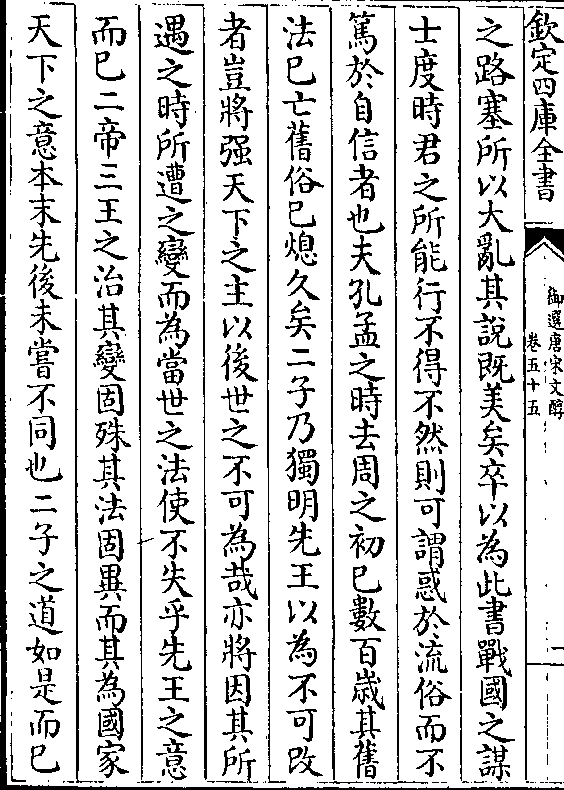 欽定四庫全書
御選唐宋文醇
卷五十五
一
之路塞所以大亂其說既美矣卒以為此書戰國之謀
士度時君之所能行不得不然則可謂惑於流俗而不
篤於自信者也夫孔孟之時去周之初已數百歲其舊
法已亡舊俗已熄久矣二子乃獨明先王以為不可改
者豈將强天下之主以後世之不可為哉亦將因其所
遇之時所遭之變而為當世之法使不失乎先王之意
而已二帝三王之治其變固殊其法固異而其為國家
天下之意本末先後未嘗不同也二子之道如是而已